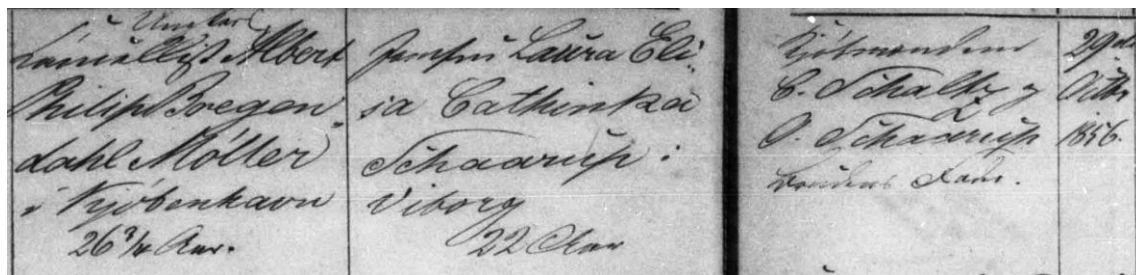 Ungkarl
Cancellist Albert
Philip Bregen-
dahl Møller
i Kjøbenhavn
26 3/4 Aar.
Jomfru Laura Eli-
sa Cathinka
Schaarup i
Viborg
22 Aar
Kjøbmændene
C. Schaltz og
O. Schaarup
Brudens Fader.
29de
Octbr
1856.